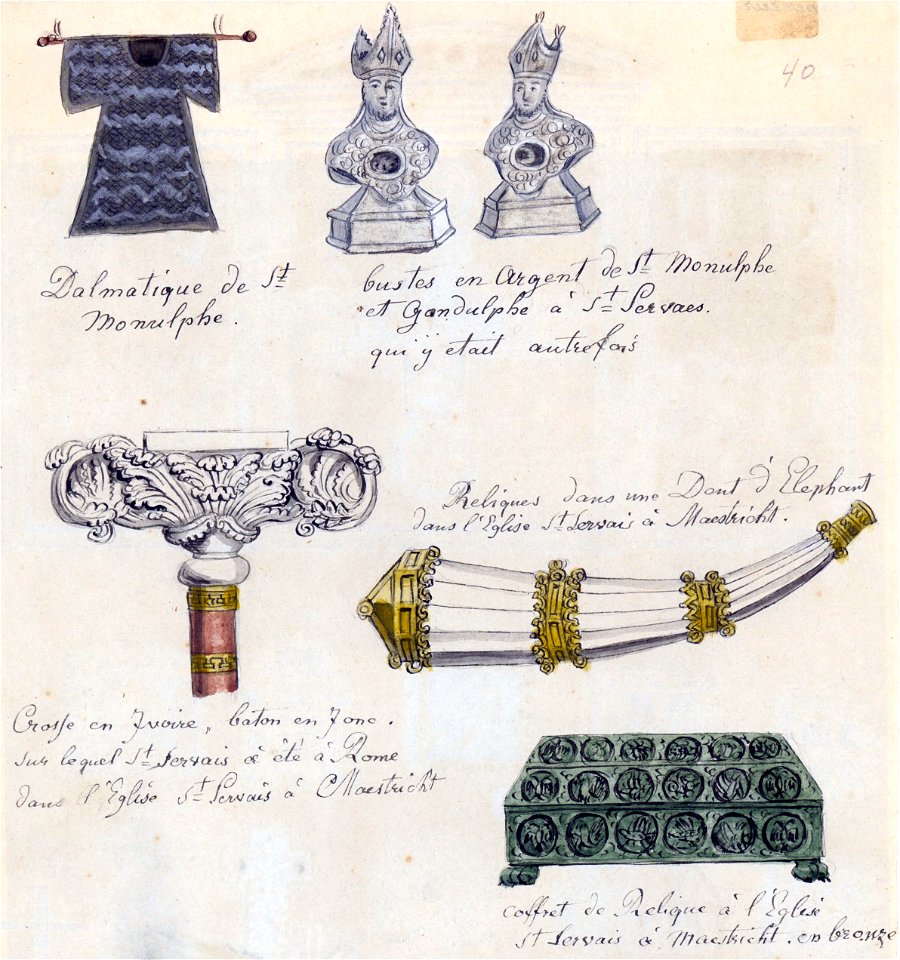 40
Dalmatique de St
Monulphe.
bustes en Argent de St Monulphe
et Gondulphe à St Servaes.
qui y etait autrefois
Reliques dans une Dent d'Elephant
dans l'Eglise St Servais à Maestricht.
Crosse en Ivoire, baton en Jonc.
sur lequel St Servais a été à Rome
dans l'Eglise St Servais à Maestricht
coffret de Relique à l'Eglise
St Servais à Maestricht. en bronze